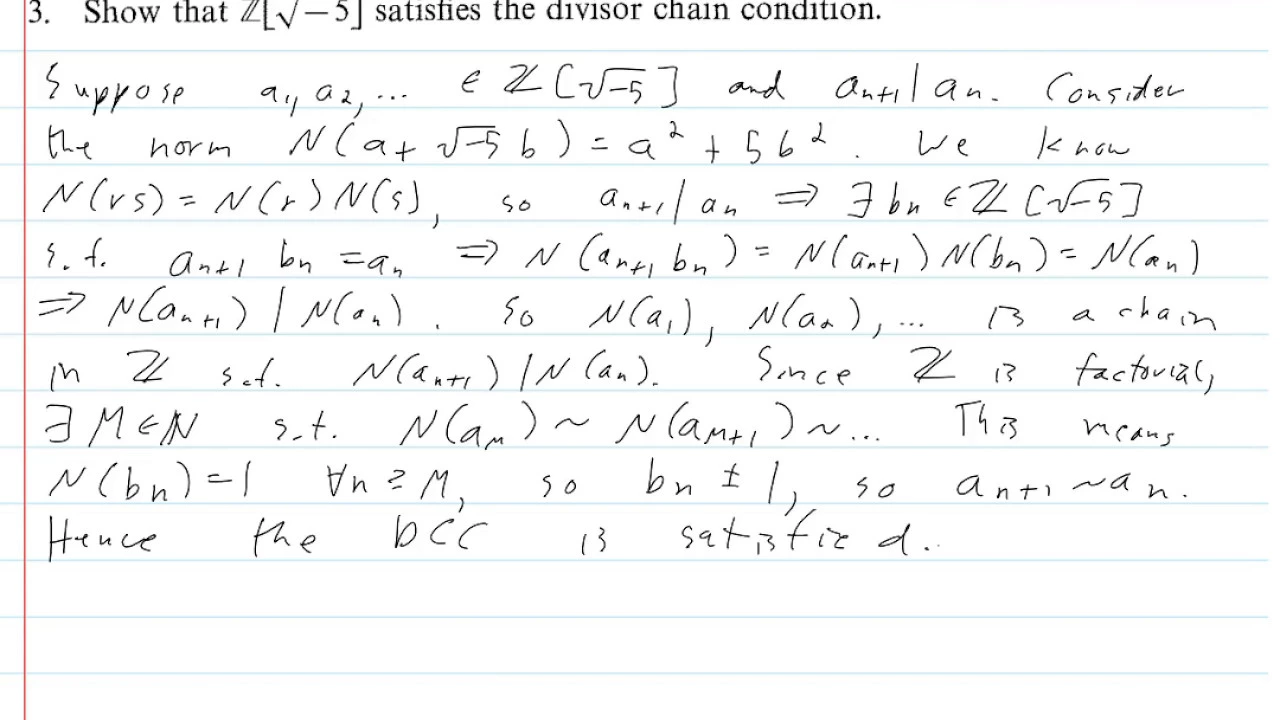 3. Show that ℤ[√−5] satisfies the divisor chain condition.
Suppose a₁, a₂, ... ∈ ℤ[√-5] and aₙ₊₁ | aₙ. Consider
the norm N(a + √-5 b) = a² + 5b². We know
N(rs) = N(r)N(s), so aₙ₊₁ | aₙ ⇒ ∃ bₙ ∈ ℤ[√-5]
s.t. aₙ₊₁ bₙ = aₙ ⇒ N(aₙ₊₁ bₙ) = N(aₙ₊₁)N(bₙ) = N(aₙ)
⇒ N(aₙ₊₁) | N(aₙ). So N(a₁), N(a₂), ... is a chain
in ℤ s.t. N(aₙ₊₁) | N(aₙ). Since ℤ is factorial,
∃ M ∈ ℕ s.t. N(a_M) ~ N(a_{M+1}) ~ ... This means
N(bₙ) = 1 ∀n ≥ M, so bₙ ± 1, so aₙ₊₁ ~ aₙ.
Hence the DCC is satisfied.